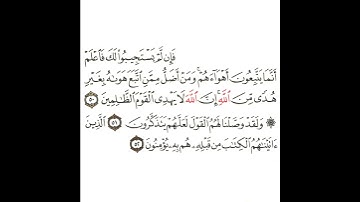 فَإِن لَّمْ يَسْتَجِيبُوا۟ لَكَ فَٱعْلَمْ
أَنَّمَا يَتَّبِعُونَ أَهْوَآءَهُمْ ۚ وَمَنْ أَضَلُّ مِمَّنِ ٱتَّبَعَ هَوَىٰهُ بِغَيْرِ
هُدًى مِّنَ ٱللَّهِ ۚ إِنَّ ٱللَّهَ لَا يَهْدِى ٱلْقَوْمَ ٱلظَّٰلِمِينَ ٥٠
۞ وَلَقَدْ وَصَّلْنَا لَهُمُ ٱلْقَوْلَ لَعَلَّهُمْ يَتَذَكَّرُونَ ٥١ ٱلَّذِينَ
ءَاتَيْنَٰهُمُ ٱلْكِتَٰبَ مِن قَبْلِهِۦ هُم بِهِۦ يُؤْمِنُونَ ٥٢